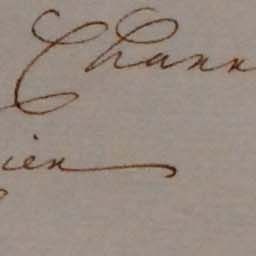 Chann
ien